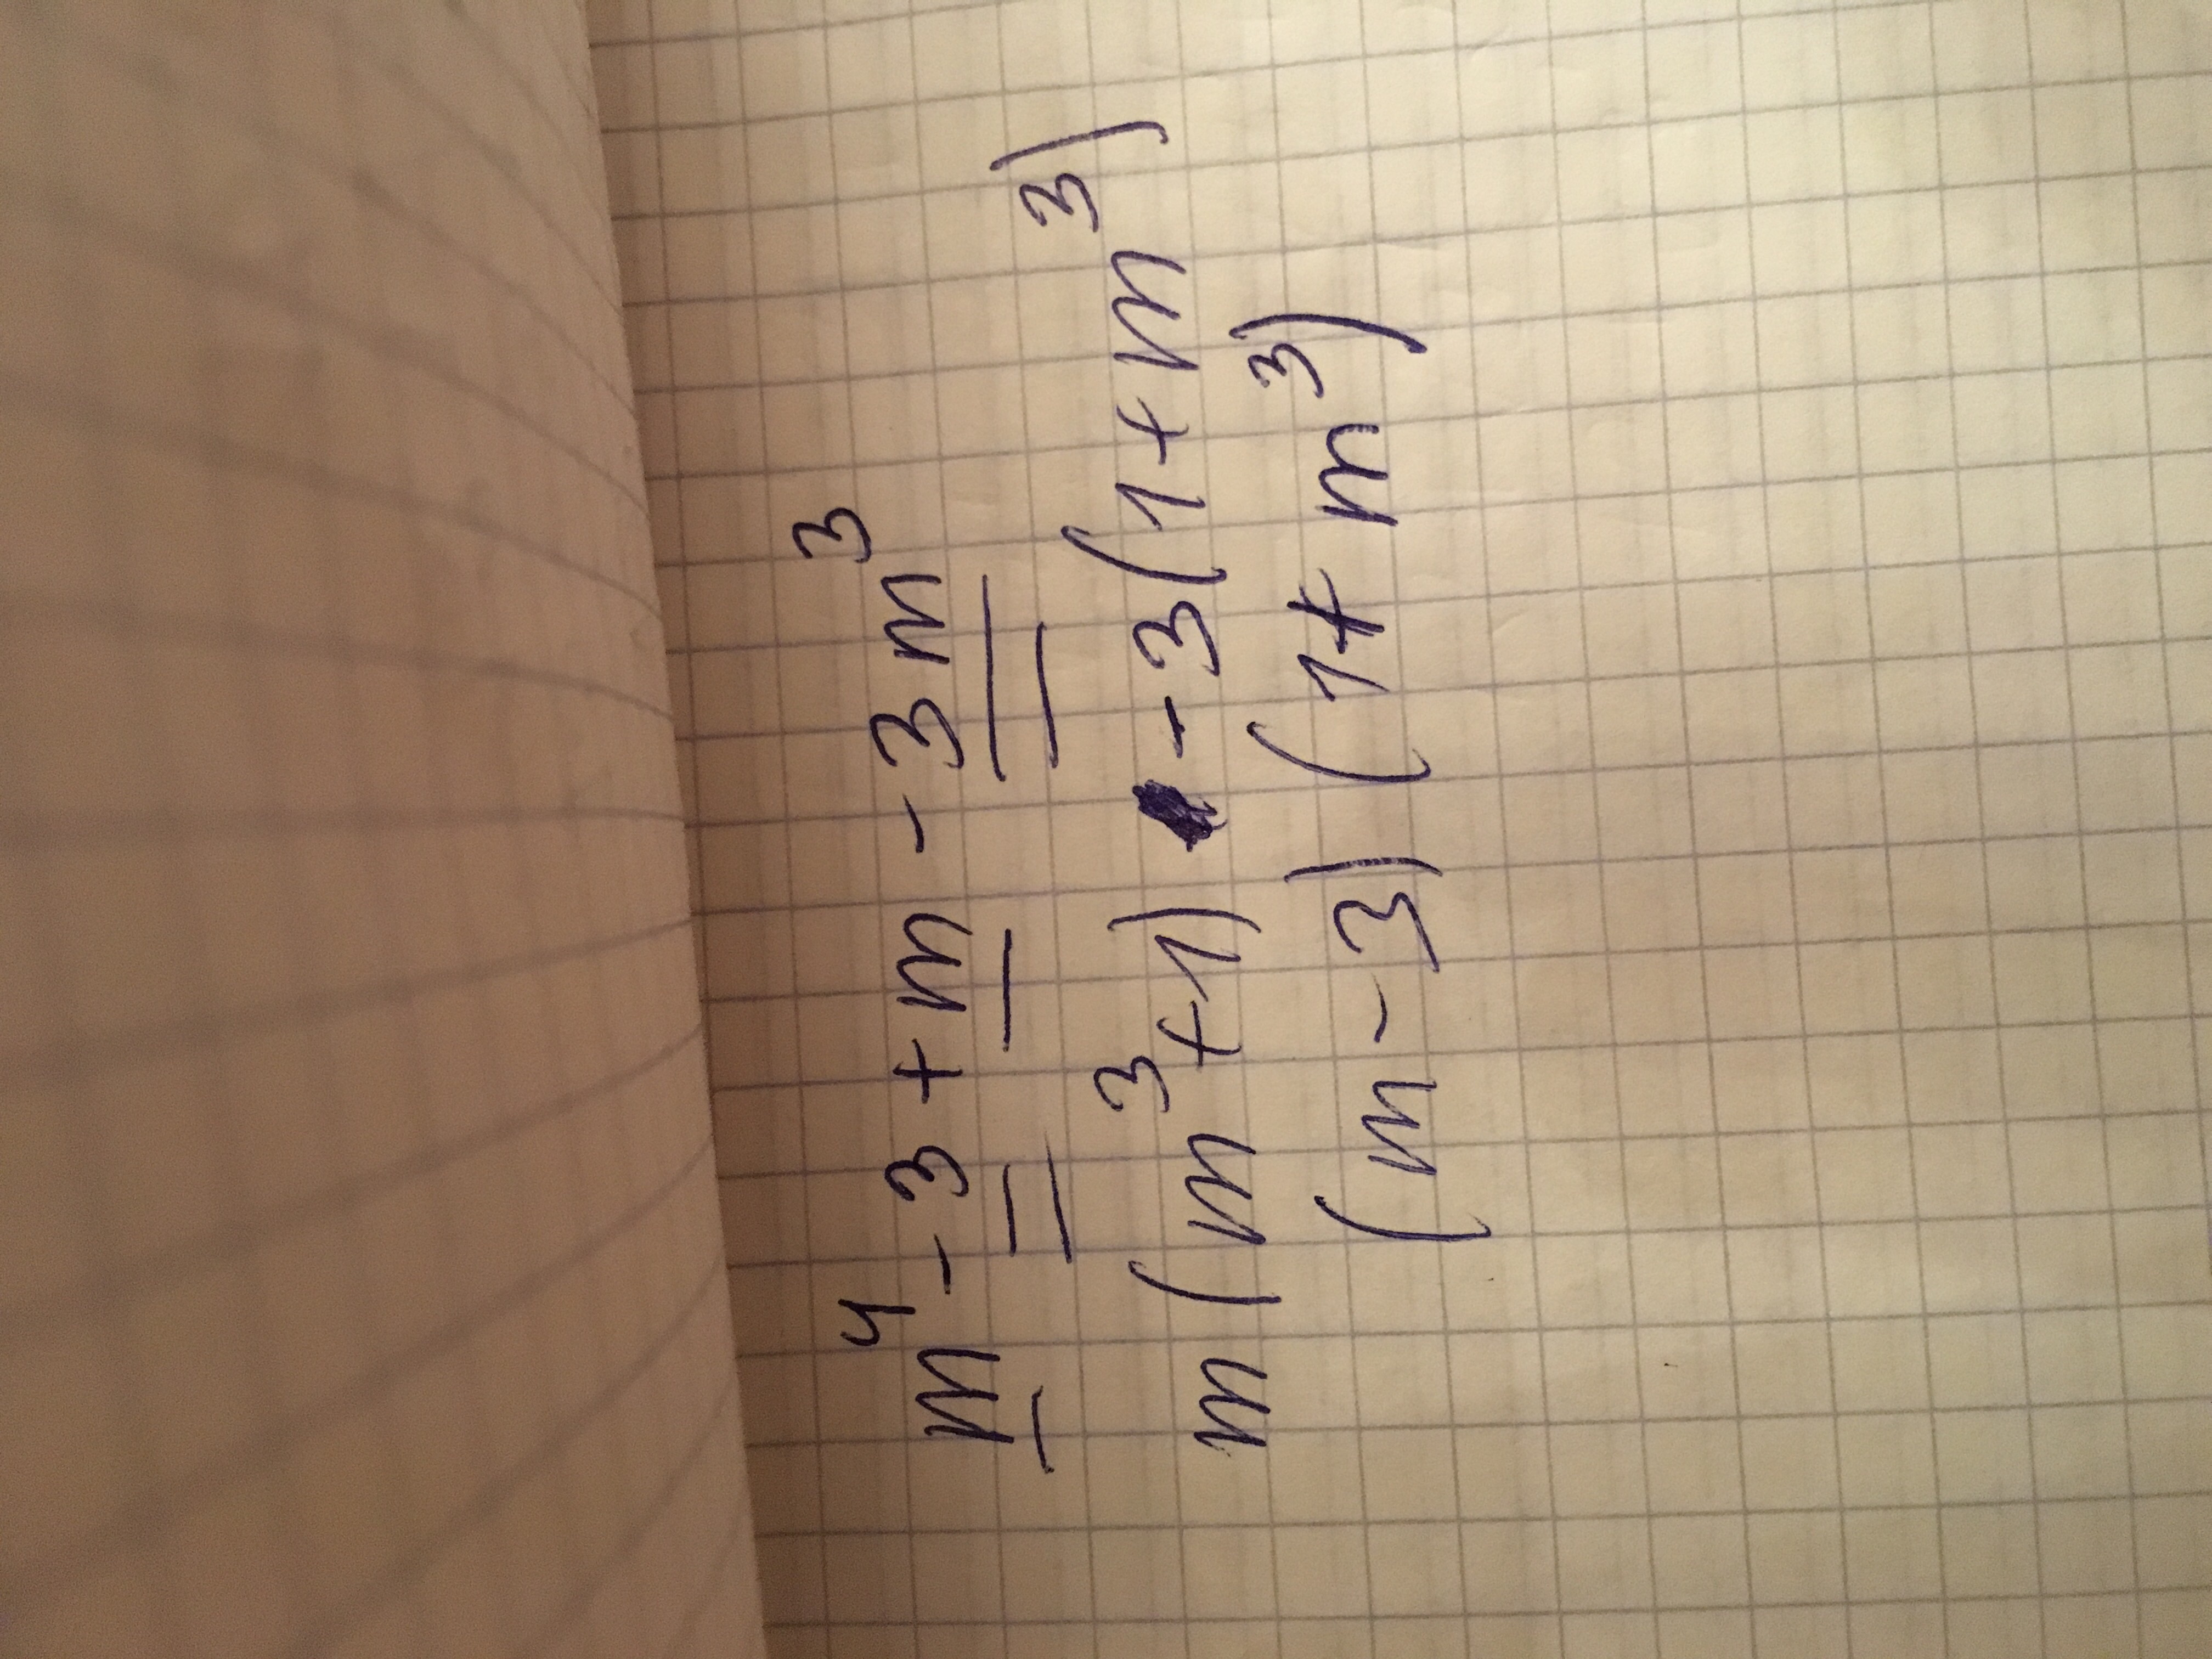 m⁴ - 3 + m - 3m³
m(m³+1) - 3(1+m³)
(m-3) (1+m³)